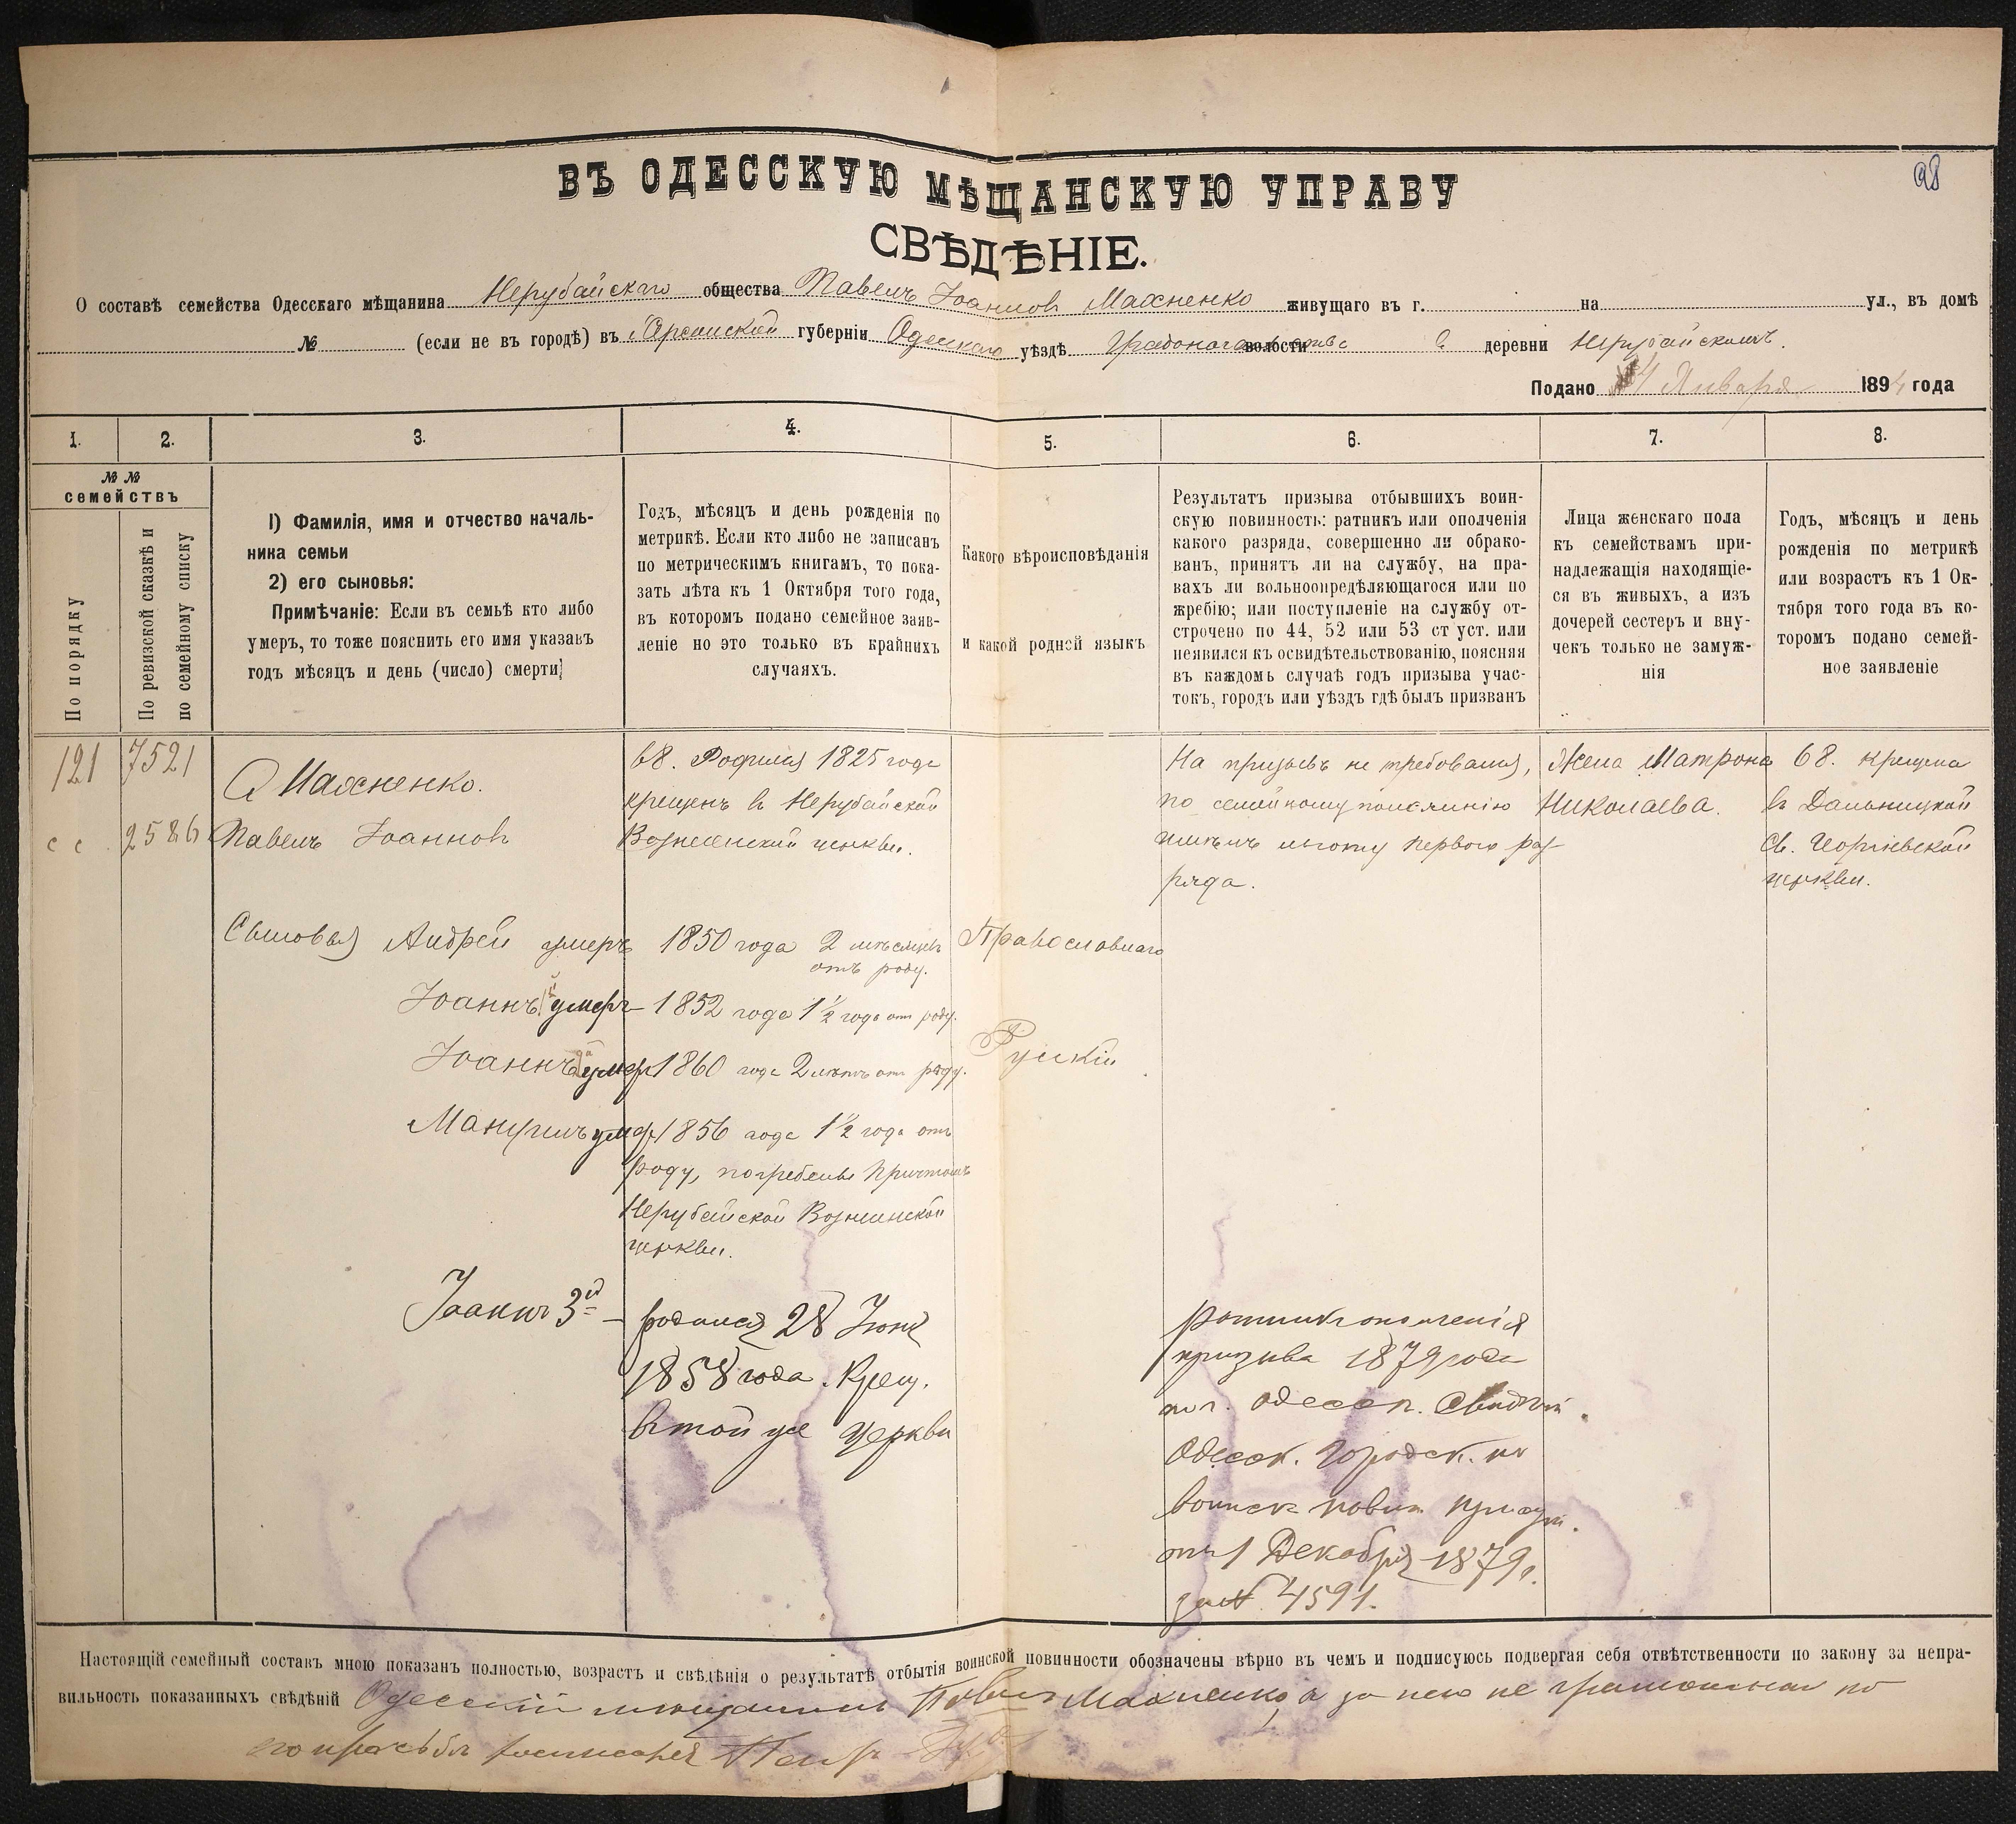 98
ВЪ ОДЕССКУЮ МѢЩАНСКУЮ УПРАВУ
СВѢДѢНІЕ.
О составѣ семейства Одесскаго мѣщанина Нерубайскаго общества Павелъ Іоанновъ Махненко живущаго въ г. на ул., въ домѣ
№ (если не въ городѣ) въ Херсонской губерніи Одесскаго уѣздѣ волости с деревни Нерубайскомъ.
Подано 4 Января 1894 года
1. 2. 3. 4. 5. 6. 7. 8.
№ №
семействъ
По порядку
По ревизской сказкѣ и
по семейному списку
1) Фамилія, имя и отчество началь-
ника семьи
2) его сыновья:
Примѣчаніе: Если въ семьѣ кто либо
умеръ, то тоже пояснить его имя указавъ
годъ мѣсяцъ и день (число) смерти;
Годъ, мѣсяцъ и день рожденія по
метрикѣ. Если кто либо не записанъ
по метрическимъ книгамъ, то пока-
зать лѣта къ 1 Октября того года,
въ которомъ подано семейное заяв-
леніе но это только въ крайнихъ
случаяхъ.
Какого вѣроисповѣданія
и какой родной языкъ
Результатъ призыва отбывшихъ воин-
скую повинность: ратникъ или ополченія
какого разряда, совершенно ли обрако-
ванъ, принятъ ли на службу, на пра-
вахъ ли вольноопредѣляющагося или по
жребію; или поступленіе на службу от-
строчено по 44, 52 или 53 ст уст. или
неявился къ освидѣтельствованію, поясняя
въ каждомъ случаѣ годъ призыва учас-
токъ, городъ или уѣздъ гдѣ былъ призванъ
Лица женскаго пола
къ семействамъ при-
надлежащія находящіе-
ся въ живыхъ, а изъ
дочерей сестеръ и вну-
чекъ только не замуж-
нія
Годъ, мѣсяцъ и день
рожденія по метрикѣ
или возрастъ къ 1 Ок-
тября того года въ ко-
торомъ подано семей-
ное заявленіе
121
7521
с с
2586
Махненко.
Павелъ Іоанновъ
68. Родился 1825 года
крещенъ в Нерубайской
Вознесенской церкви.
На призывъ не требовался,
по семейному положенію
имѣлъ льготу первого раз-
ряда.
Жена Матрона
Николаева.
68. крещена
въ Дальницкой
Св. Георгіевской
церкви.
Сыновья Андрей умеръ 1850 года 2 мѣсяцевъ
отъ роду.
Православнаго
Іоаннъ 1й умеръ 1852 года 1½ года отъ роду.
Іоаннъ 2й умеръ 1860 года 2 лѣтъ отъ роду.
Рускій
Мануилъ умеръ 1856 года 1½ года отъ
роду, погребены Причтомъ
Нерубайской Вознесенской
церкви.
Іоаннъ 3й – родился 28 Іюня
1858 года. Крещ.
въ той же церкви
ратникъ ополченія
призыва 1879 года
по г. Одессѣ. Свидѣт.
Одесск. Городск. по
воинск повин присут.
отъ 1 Декабря 1879 г.
за № 4591.
Настоящій семейный составъ мною показанъ полностью, возрастъ и свѣдѣнія о результатѣ отбытія воинской повинности обозначены вѣрно въ чемъ и подписуюсь подвергая себя отвѣтственности по закону за непра-
вильность показанныхъ свѣдѣній Одесскій мѣщанинъ Павелъ Махненко, а за него не грамотнаго по
его просьбѣ росписался Петръ